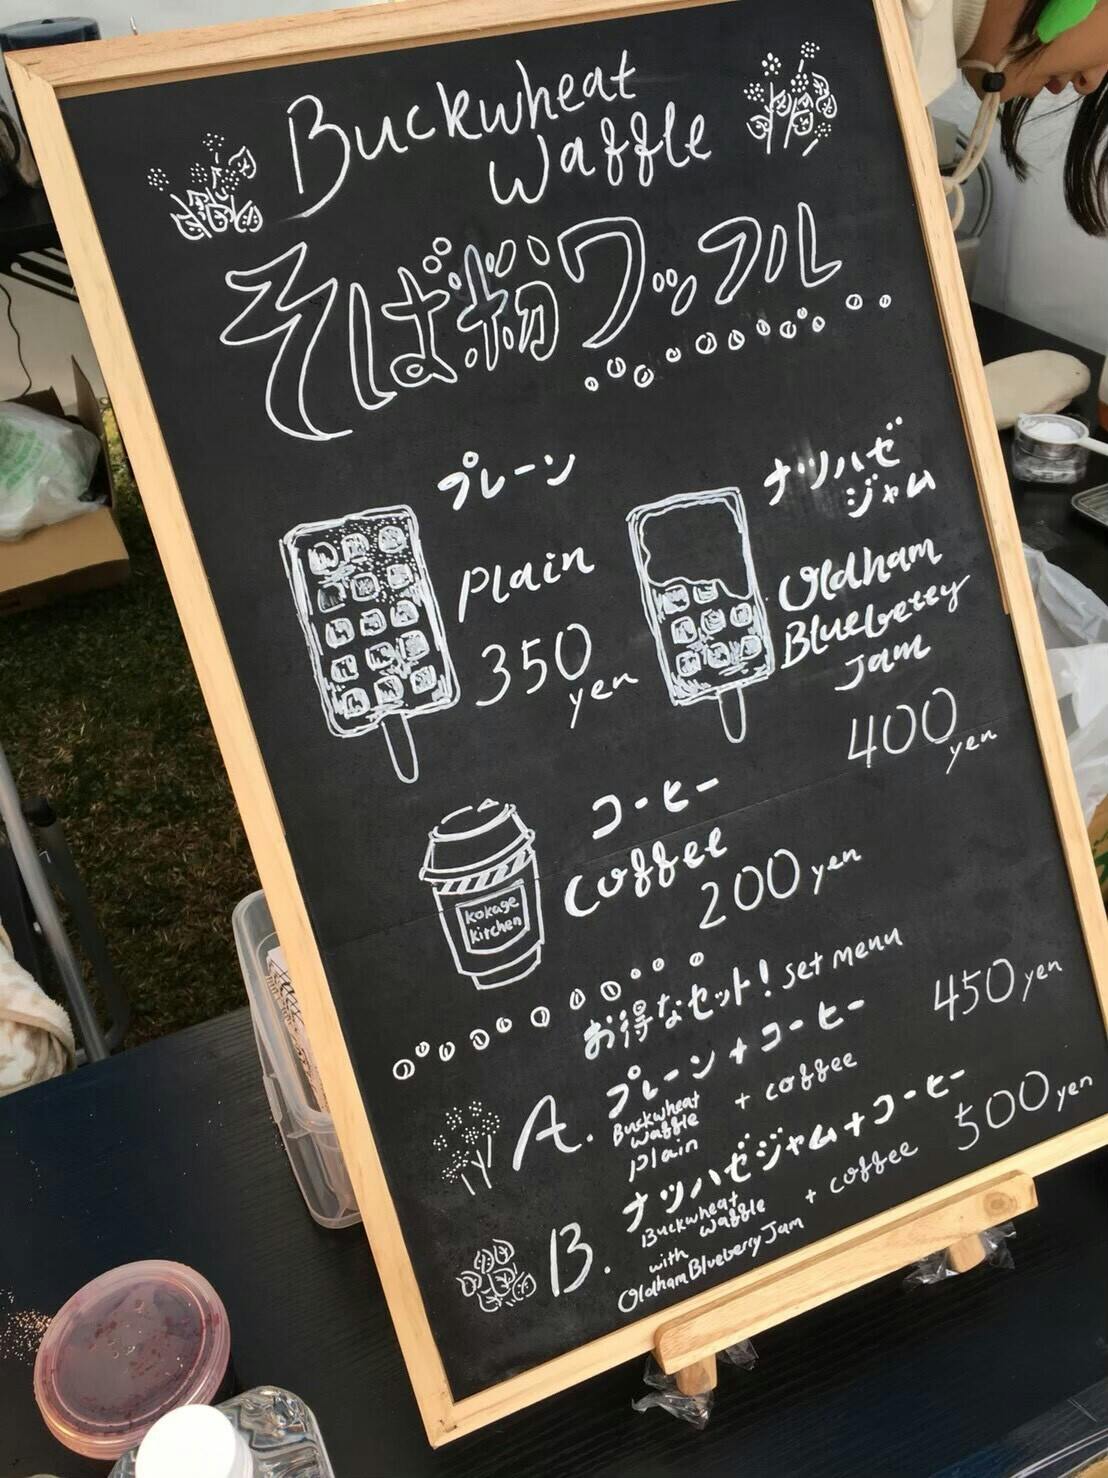 Buckwheat
Waffle
そば粉ワッフル
プレーン
Plain
350
yen
ナツハゼ
ジャム
Oldham
Blueberry
Jam
400
yen
コーヒー
Coffee
200 yen
kokage
kitchen
お得なセット! set menu
A. プレーン+コーヒー 450 yen
Buckwheat
Waffle
Plain
+ coffee
B. ナツハゼジャム+コーヒー 500 yen
Buckwheat
Waffle
with
Oldham Blueberry Jam
+ coffee